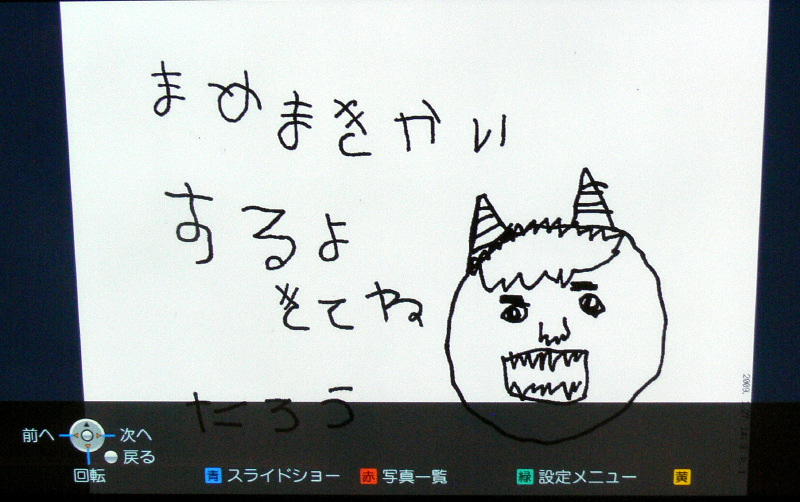 まめまきかい
するよ
きてね
たろう
2009.
前へ 次へ
戻る
回転 青 スライドショー 赤 写真一覧 緑 設定メニュー 黄